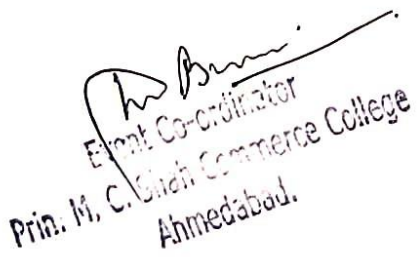 Event Co-ordinator
Prin. M. C. Shah Commerce College
Ahmedabad.